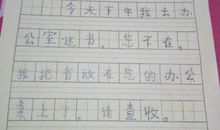 今天下午我去办
公室还书，您不在。
我把书放在您的办公
桌上了。请查收。